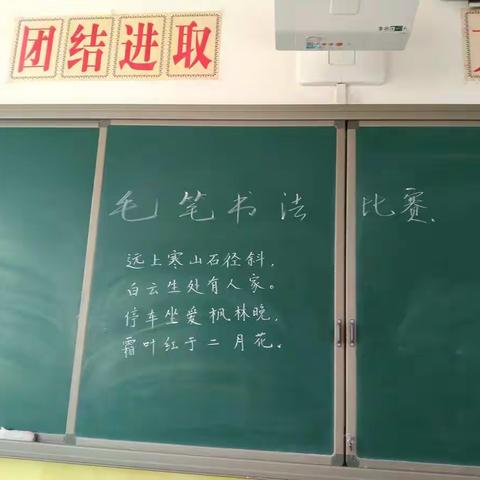 团结进取
毛笔书法比赛.
远上寒山石径斜,
白云生处有人家。
停车坐爱枫林晚,
霜叶红于二月花。